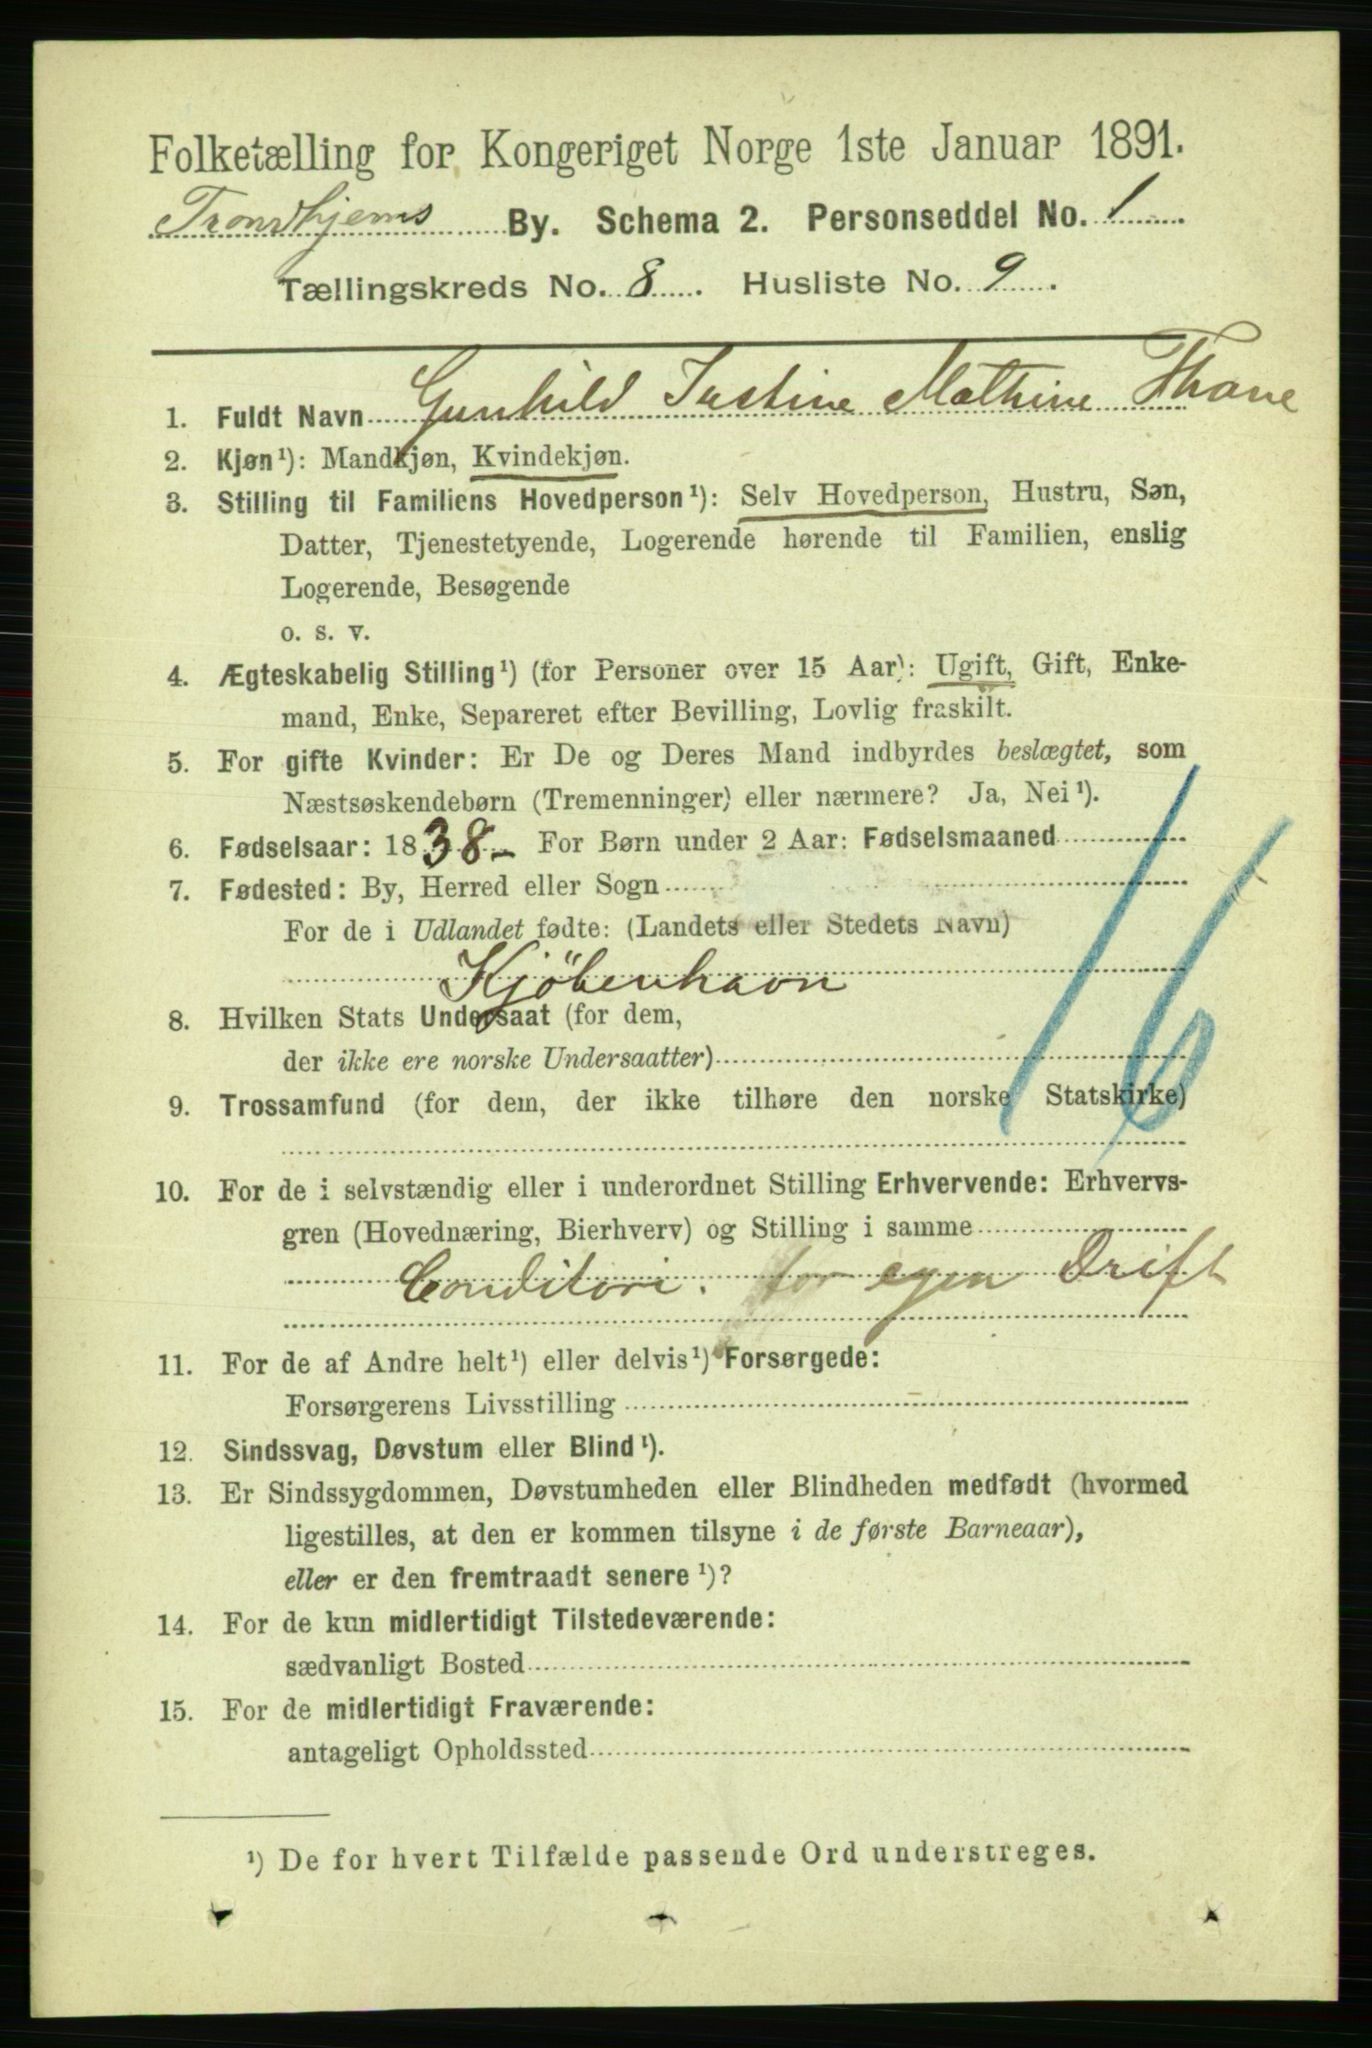 Folketælling for Kongeriget Norge 1ste Januar 1891.
Trondhjems By. Schema 2. Personseddel No. 1
Tællingskreds No. 8. Husliste No. 9.
1. Fuldt Navn Gunhild Justine Mathine Thane
2. Kjøn¹): Mandkjøn, Kvindekjøn.
3. Stilling til Familiens Hovedperson¹): Selv Hovedperson, Hustru, Søn,
Datter, Tjenestetyende, Logerende hørende til Familien, enslig
Logerende, Besøgende
o. s. v.
4. Ægteskabelig Stilling¹) (for Personer over 15 Aar): Ugift, Gift, Enke-
mand, Enke, Separeret efter Bevilling, Lovlig fraskilt.
5. For gifte Kvinder: Er De og Deres Mand indbyrdes beslægtet, som
Næstsøskendebørn (Tremenninger) eller nærmere? Ja, Nei¹).
6. Fødselsaar: 1838- For Børn under 2 Aar: Fødselsmaaned
7. Fødested: By, Herred eller Sogn
For de i Udlandet fødte: (Landets eller Stedets Navn)
Kjöbenhavn
8. Hvilken Stats Undersaat (for dem,
der ikke ere norske Undersaatter)
16
9. Trossamfund (for dem, der ikke tilhøre den norske Statskirke)
10. For de i selvstændig eller i underordnet Stilling Erhvervende: Erhvervs-
gren (Hovednæring, Bierhverv) og Stilling i samme
Conditori. for egen Drift
11. For de af Andre helt¹) eller delvis¹) Forsørgede:
Forsørgerens Livsstilling
12. Sindssvag, Døvstum eller Blind¹).
13. Er Sindssygdommen, Døvstumheden eller Blindheden medfødt (hvormed
ligestilles, at den er kommen tilsyne i de første Barneaar),
eller er den fremtraadt senere¹)?
14. For de kun midlertidigt Tilstedeværende:
sædvanligt Bosted
15. For de midlertidigt Fraværende:
antageligt Opholdssted
¹) De for hvert Tilfælde passende Ord understreges.